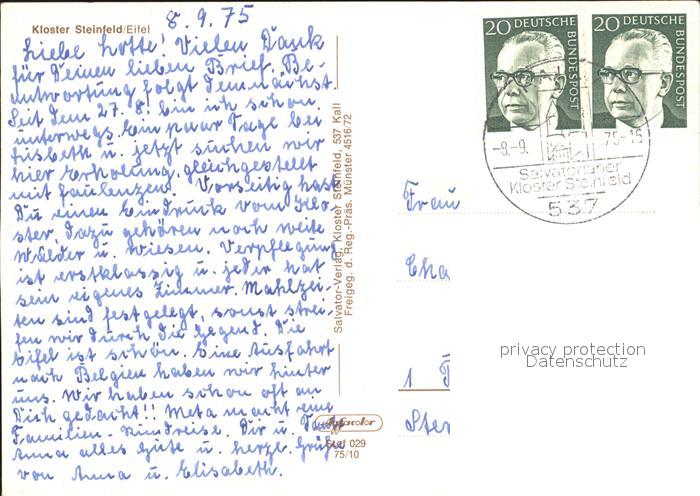 Kloster Steinfeld/Eifel
8.9.75
Liebe Lotte! Vielen Dank
für Deinen lieben Brief. Be-
antwortung folgt demnächst.
Seit dem 27.8. bin ich schon
unterwegs. Ein paar Tage bei
Lisbeth u. jetzt suchen wir
hier Erholung, gleichgestellt
mit faulenzen. Vorseitig hast
Du einen Eindruck vom Klo-
ster. Dazu gehören noch weite
Wälder u. Wiesen. Verpflegung
ist erstklassig u. jeder hat
sein eigenes Zimmer. Mahlzei-
ten sind festgelegt, sonst strei-
fen wir durch die Gegend. Die
Eifel ist schön. Eine Ausfahrt
nach Belgien haben wir hinter
uns. Wir haben schon oft an
Dich gedacht!! Meta macht eine
Familien-Rundreise. Dir u. Tante
Anna alles Gute u. herzl. Grüße
von Anna u. Elisabeth.
Salvator-Verlag, Kloster Steinfeld, 537 Kall
Freigeg. d. Reg.-Präs. Münster 4516/72
Affacolor
Stef 029
75/10
20 DEUTSCHE BUNDESPOST
20 DEUTSCHE BUNDESPOST
-8.-9. 75-16
Salvatorianer
Kloster Steinfeld
537
Frau
Cha
1
Ster
privacy protection
Datenschutz